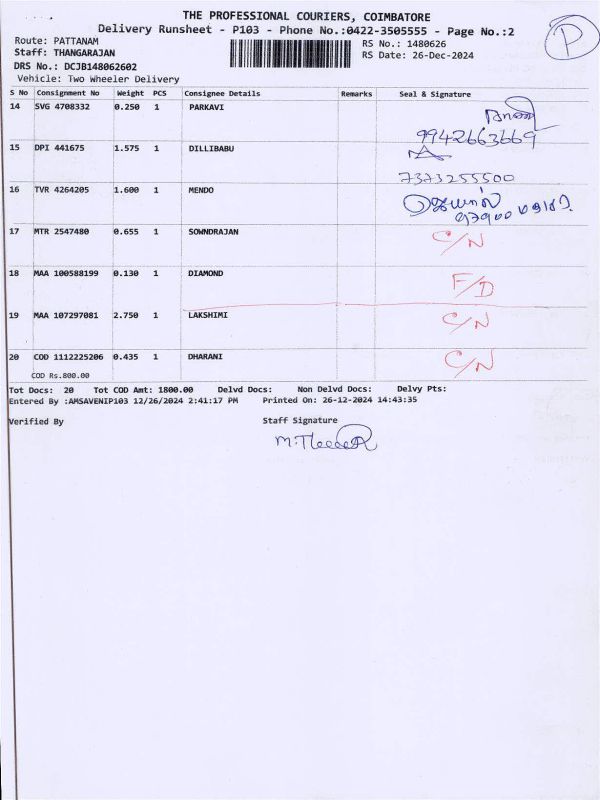 THE PROFESSIONAL COURIERS, COIMBATORE
Delivery Runsheet - P103 - Phone No.:0422-3505555 - Page No.:2
P
Route: PATTANAM
RS No.: 1480626
Staff: THANGARAJAN
RS Date: 26-Dec-2024
DRS No.: DCJB148062602
Vehicle: Two Wheeler Delivery
S No Consignment No Weight PCS Consignee Details Remarks Seal & Signature
14 SVG 4708332 0.250 1 PARKAVI
9942663669
15 DPI 441675 1.575 1 DILLIBABU
7373255500
16 TVR 4264205 1.600 1 MENDO
17 MTR 2547480 0.655 1 SOWNDRAJAN C/N
18 MAA 100588199 0.130 1 DIAMOND F/D
19 MAA 107297081 2.750 1 LAKSHIMI C/N
20 COD 1112225206 0.435 1 DHARANI C/N
COD Rs.800.00
Tot Docs: 20 Tot COD Amt: 1800.00 Delvd Docs: Non Delvd Docs: Delvy Pts:
Entered By :AMSAVENIP103 12/26/2024 2:41:17 PM Printed On: 26-12-2024 14:43:35
Verified By Staff Signature